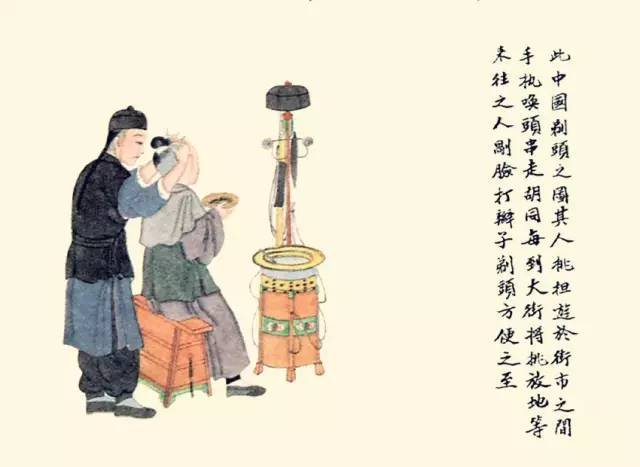 此中國剃頭之圖其人挑担遊於街市之間
手執喚頭串走胡同每到大街將挑放地等
來往之人剮臉打辮子剃頭方便之至